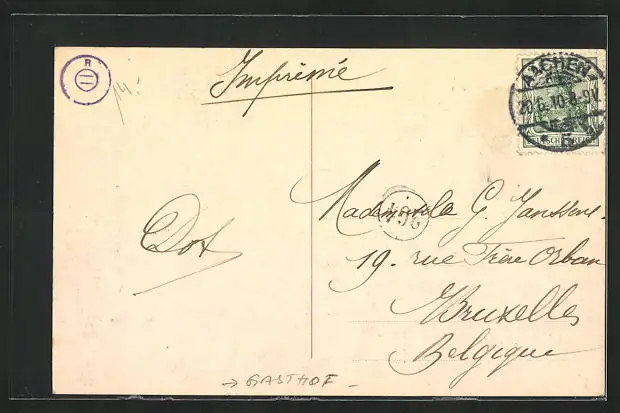 R
11
14.
Imprimé
AACHEN
20.6.10.8-9V
DEUTSCHES REICH
Mademoiselle G. Janssens.
Dot
19. rue Frère Orban
Bruxelles
Belgique
→ GASTHOF –